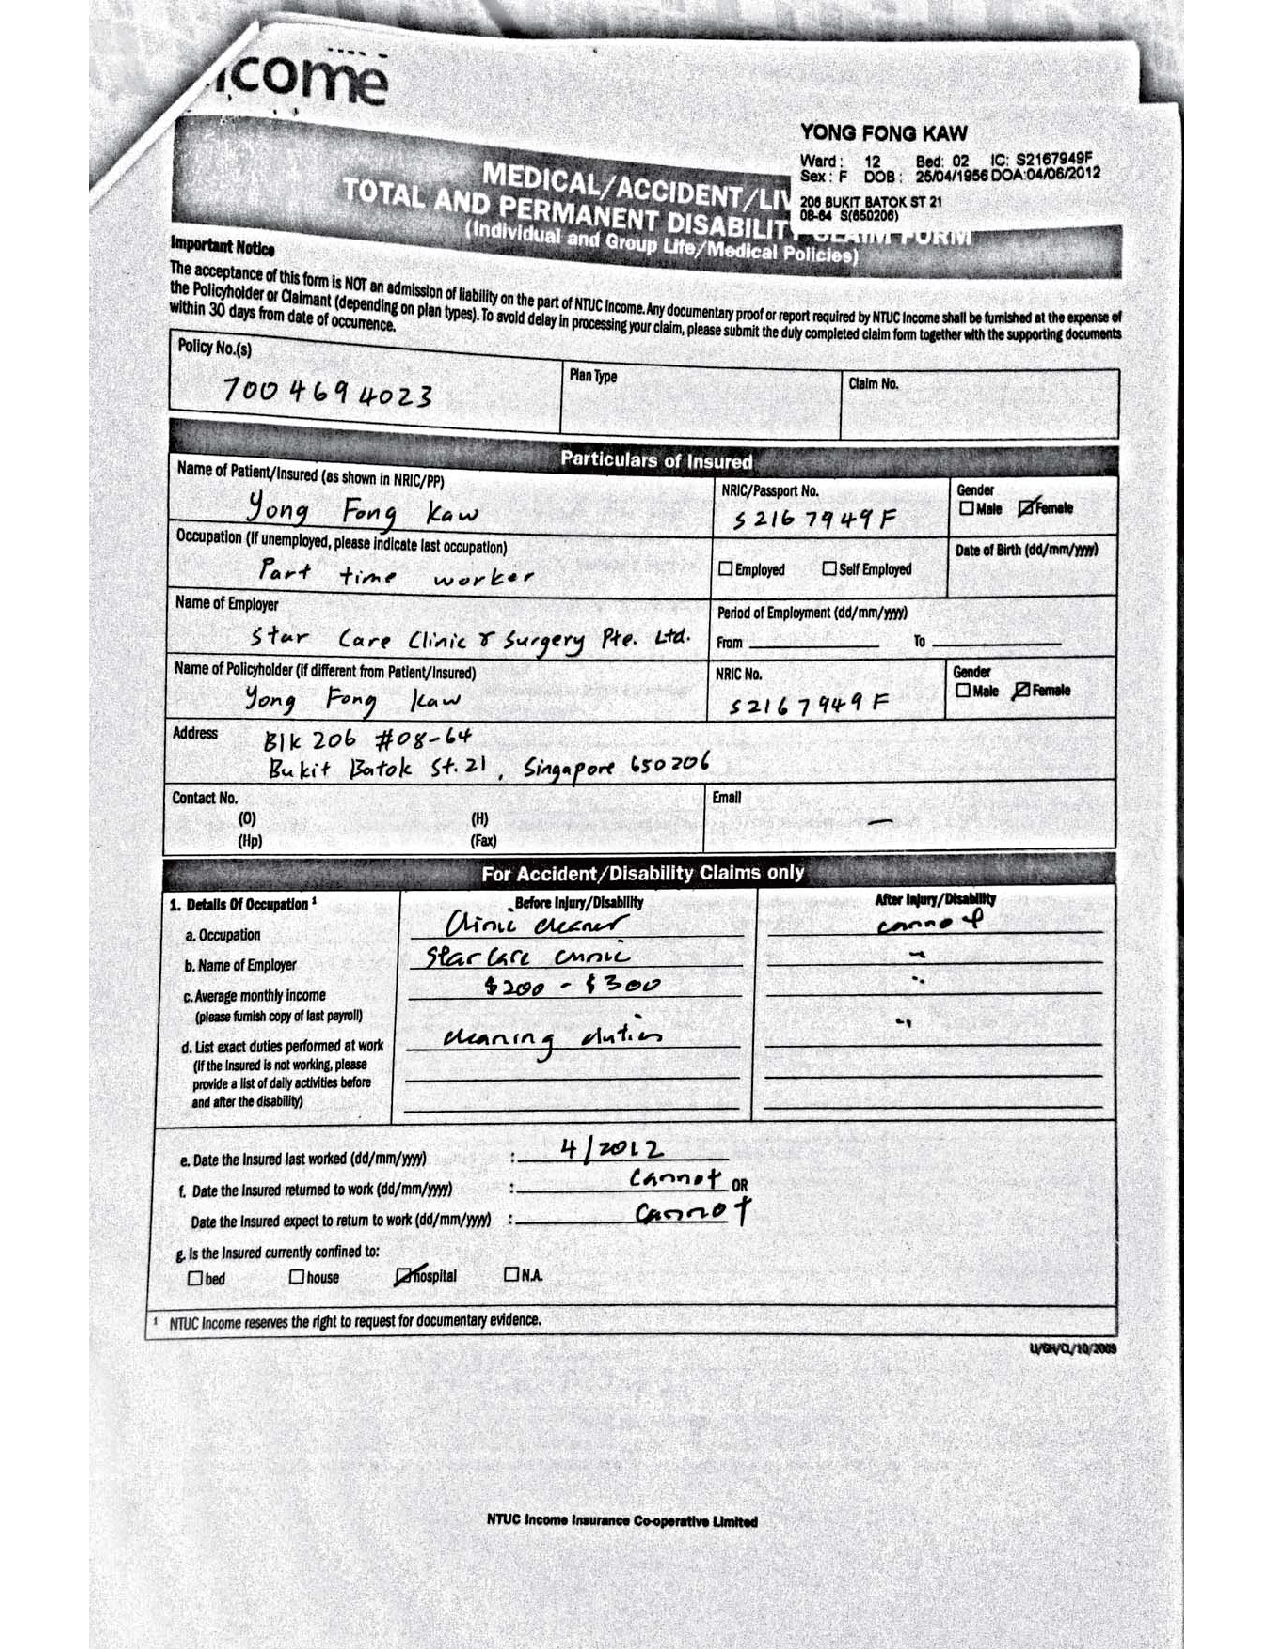 income
YONG FONG KAW
Ward : 12 Bed: 02 IC: S2167949F
Sex : F DOB : 25/04/1956 DOA:04/06/2012
206 BUKIT BATOK ST 21
08-64 S(650206)
MEDICAL/ACCIDENT/LIV
TOTAL AND PERMANENT DISABILITY CLAIM FORM
(Individual and Group Life/Medical Policies)
Important Notice
The acceptance of this form is NOT an admission of liability on the part of NTUC Income. Any documentary proof or report required by NTUC Income shall be furnished at the expense of
the Policyholder or Claimant (depending on plan types). To avoid delay in processing your claim, please submit the duly completed claim form together with the supporting documents
within 30 days from date of occurrence.
Policy No.(s) Plan Type Claim No.
7004694023
Particulars of Insured
Name of Patient/Insured (as shown in NRIC/PP) NRIC/Passport No. Gender
Yong Fong Kaw S2167949F Male Female
Occupation (If unemployed, please indicate last occupation) Date of Birth (dd/mm/yyyy)
Part time worker Employed Self Employed
Name of Employer Period of Employment (dd/mm/yyyy)
Star Care Clinic & Surgery Pte. Ltd. From To
Name of Policyholder (if different from Patient/Insured) NRIC No. Gender
Yong Fong Kaw S2167949F Male Female
Address Blk 206 #08-64
Bukit Batok St. 21, Singapore 650206
Contact No. Email
(O) (H) —
(Hp) (Fax)
For Accident/Disability Claims only
1. Details Of Occupation ¹ Before Injury/Disability After Injury/Disability
a. Occupation Clinic cleaner cannot
b. Name of Employer Star Care Clinic
c. Average monthly income $200 - $300
(please furnish copy of last payroll)
d. List exact duties performed at work cleaning duties
(If the Insured is not working, please
provide a list of daily activities before
and after the disability)
e. Date the Insured last worked (dd/mm/yyyy) : 4/2012
f. Date the Insured returned to work (dd/mm/yyyy) : Cannot OR
Date the Insured expect to return to work (dd/mm/yyyy) : Cannot
g. Is the Insured currently confined to:
bed house hospital N.A.
¹ NTUC Income reserves the right to request for documentary evidence.
NTUC Income Insurance Co-operative Limited